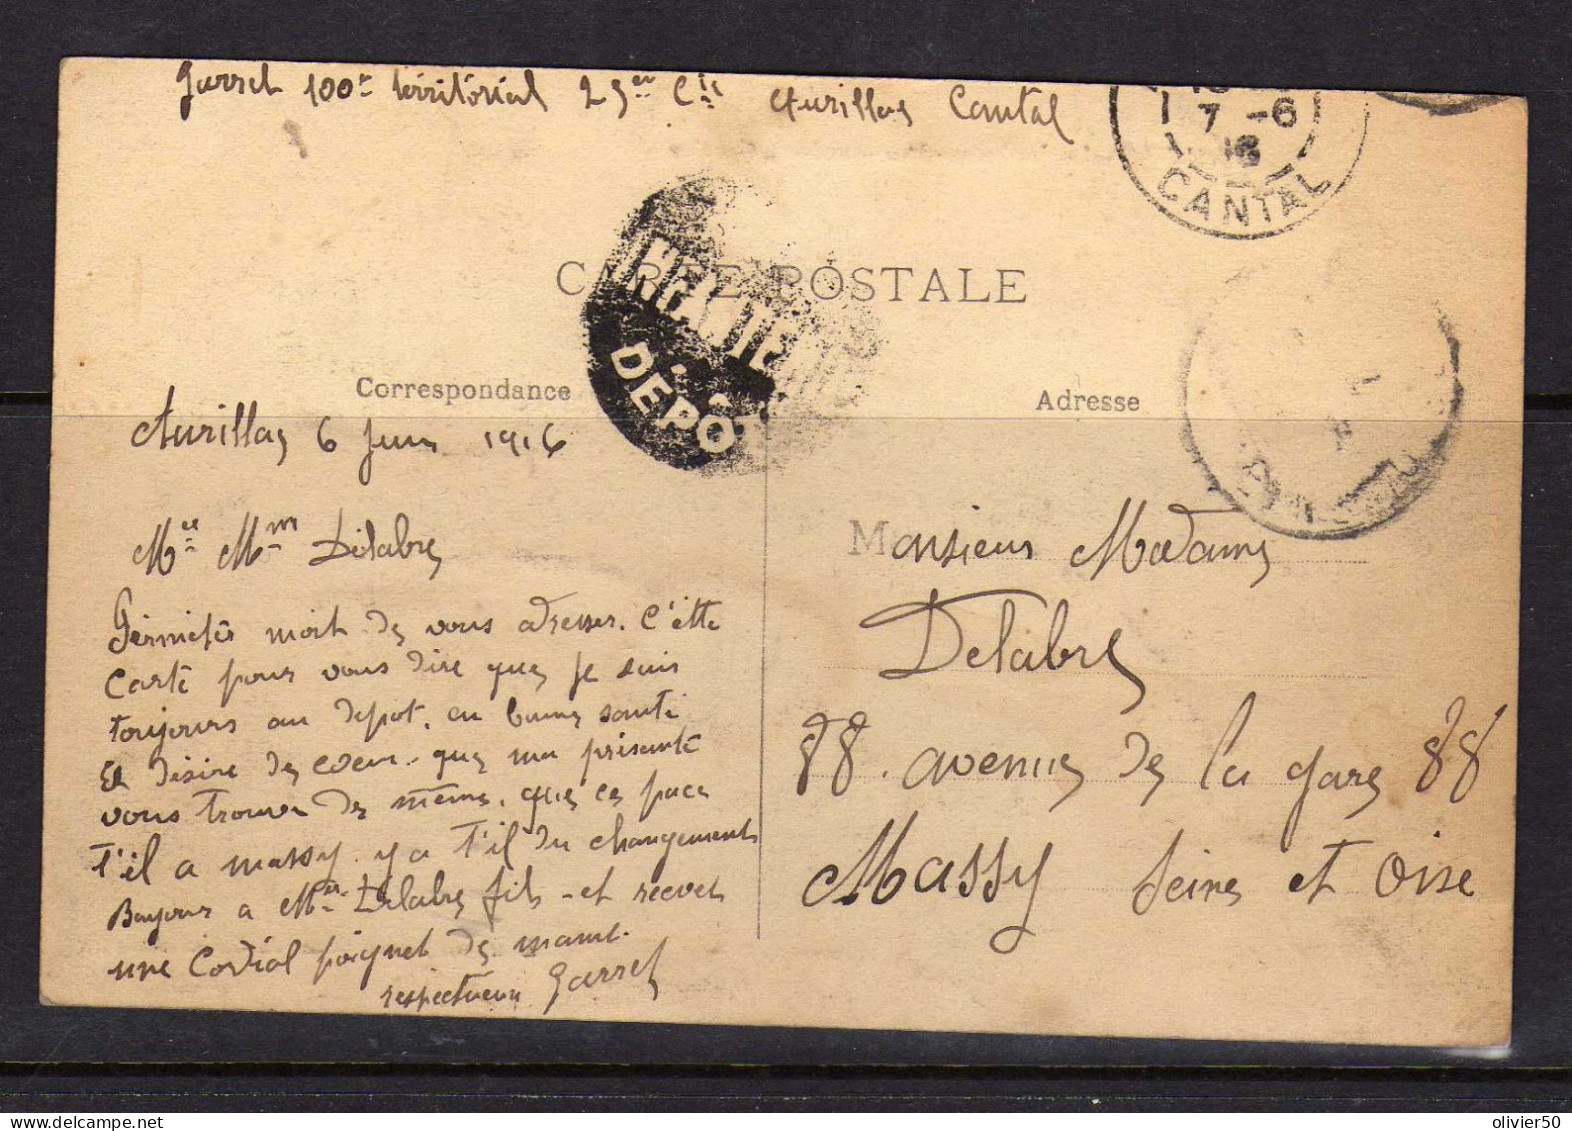 Garrel 100e territorial 25em Cie Aurillac Cantal
7 -6
16
CANTAL
CARTE POSTALE
DÉPÔ
Correspondance
Adresse
Aurillac 6 Juin 1916
Mr Mme Delabre
Permeter moit de vous adresser. C'ette
Carte pour vous dire que je suis
toujours au depot. en bonne santé
Et désire de coeur. que ma présante
vous trouve de même. que ce pace
t'il a massy. y a t'il du changement
Bonjour a Mr Delabre fils - et recever
une Cordial poignet de maint.
respectueux Garrel
Monsieur Madame
Delabre
88. avenue de la gare 88
Massy Seine et Oise
olivier50